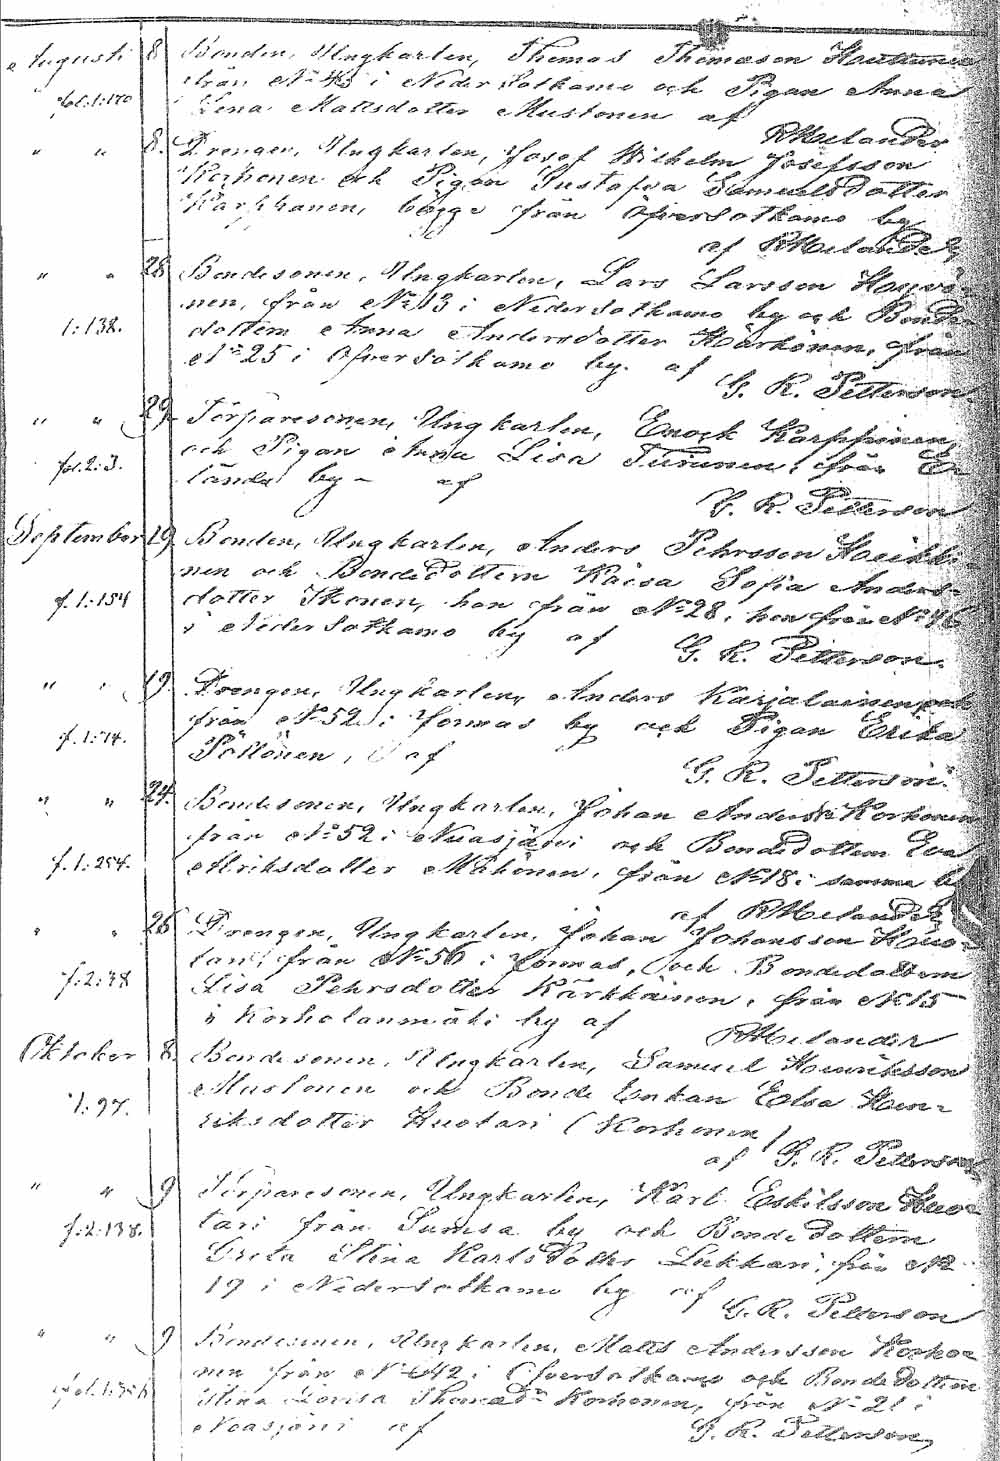 Augusti 8 Bonden, Ungkarlen, Thomas Thomasson
från No 43 i Neder Sotkamo och Pigan Anna
fol. 1:170 Lena Mattsdotter Mustonen af
RMelander
" " 8. Drengen, Ungkarlen, Josef Wilhelm Josefsson
Korhonen och Pigan Gustafva Samuelsdotter
Karphanen, bägge från Öfversotkamo by
af RMelander
" " 28 Bondesonen, Ungkarlen, Lars Larsson
nen, från No 13 i Nedersotkamo by och Bonde-
1:138. dottern Anna Andersdotter Härkönen, från
No 25 i Öfversotkamo by. af
G. R. Petterson.
" " 29 Torparesonen, Ungkarlen, Enock Karppinen,
fol. 2:3. och Pigan Anna Lisa Turunen, från
by – af
G. R. Petterson
September 19 Bonden, Ungkarlen, Anders Pehrsson Heikki-
nen och Bondedottern Kaisa Sofia Anders-
f. 1:154 dotter Ikonen, han från No 28, hon från No 46
i Neder Sotkamo by af
G. R. Petterson.
" " 19. Drengen, Ungkarlen, Anders Karjalainen
från No 52 i Jormas by och Pigan Erika
f. 1:14. Pöllönen, af
G. R. Petterson.
" " 24. Bondesonen, Ungkarlen, Johan Korhonen
från No 52 i Nuasjärvi och Bondedottern Eva
f. 1:254. Mähönen, från No 18 i samma by
af RMelander
" " 26 Drengen, Ungkarlen, Johan Johansson Huo-
tari, från No 56 i Jormas, och Bondedottern
f. 2:38 Lisa Pehrsdotter Kärkkäinen, från No 15
i Korholanmäki by af
RMelander
Oktober 8. Bondesonen, Ungkarlen, Samuel Henriksson
Mustonen och Bonde Enkan Elsa Hen-
1:97. riksdotter Huotari (Korhonen)
af G. R. Petterson
" " 9 Torparesonen, Ungkarlen, Karl Eskilsson Huo-
tari från Sumsa by och Bondedottern
f. 2:138. Greta Stina Karlsdotter Lukkari, från No
19 i Nedersotkamo by af
G. R. Petterson
" " 9 Bondesonen, Ungkarlen, Matts Andersson Korho-
nen från No 42 i Öfversotkamo och Bondedottern
Stina Lovisa Thomasdr Korhonen, från No 21 i
Nuasjärvi af
G. R. Petterson,